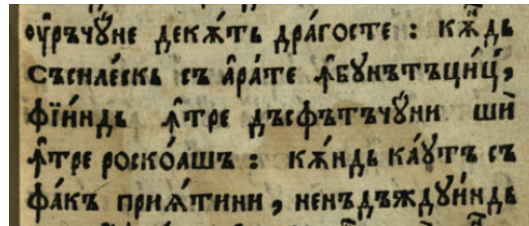 ѹ҆́рѫчю́не декѫ́ть дра́госте : кѫ́дь
съсиле́скь съ а҆ра́те ꙟ҆бꙋнътъци́й,
фїи́ндь ꙟ҆тре дъсфътъчю́ни шѝ
ꙟ҆тре роско́ашъ : кѫ́ндь ка́ѹтъ съ
фа́къ прїѧ́тини , ненъдъждꙋи́ндь